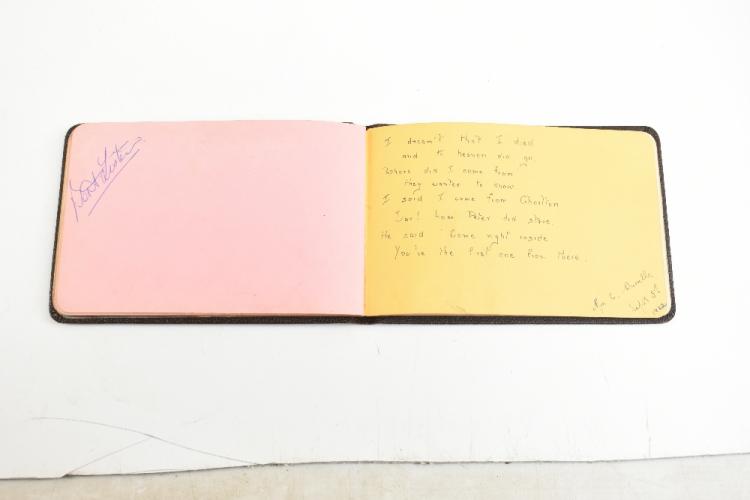 I dreamt that I died
and to heaven did go
Where did I come from
they wanted to know
I said I came from Chorlton
Peter did stare
He said "Come right inside
You're the first one from there.
Sept